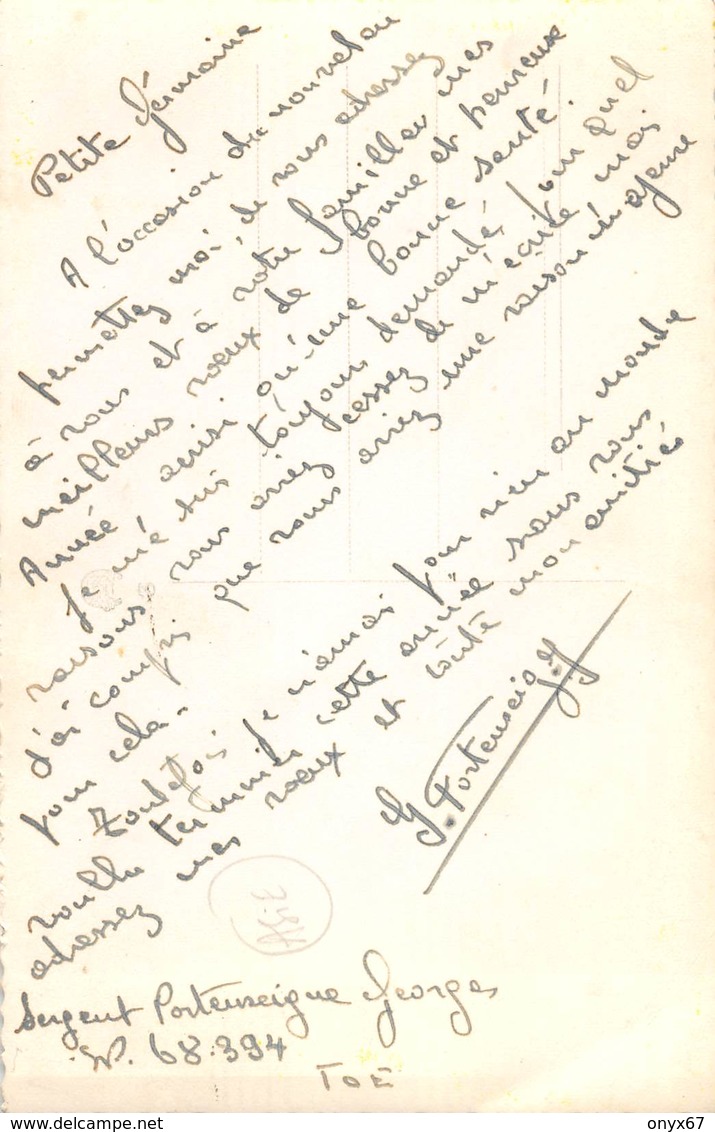 Petite Germaine
A l'occasion du nouvel an
permettez moi, de vous adressez
à vous et à votre famille mes
meilleurs vœux de bonne et heureuse
Année ainsi qu'une bonne santé.
Je me suis toujours demandé, pour quel
raisons vous aviez cessez de m'écrite, mais
j'ai compris que vous aviez une raison majeure
pour cela.
Toutefois je n'aurais pour rien au monde
voullu terminer cette année sans vous
adressez mes vœux et toute mon amitiés
G. Portenseigne
Sergent Portenseigne Georges
S.P. 68.394
TOE
onyx67